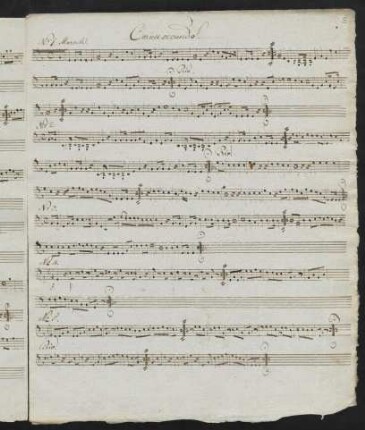 Corno secundo
No 1 Marsch
Trio
No 2.
Trio
No 3.
No 4.
No 5.
Trio